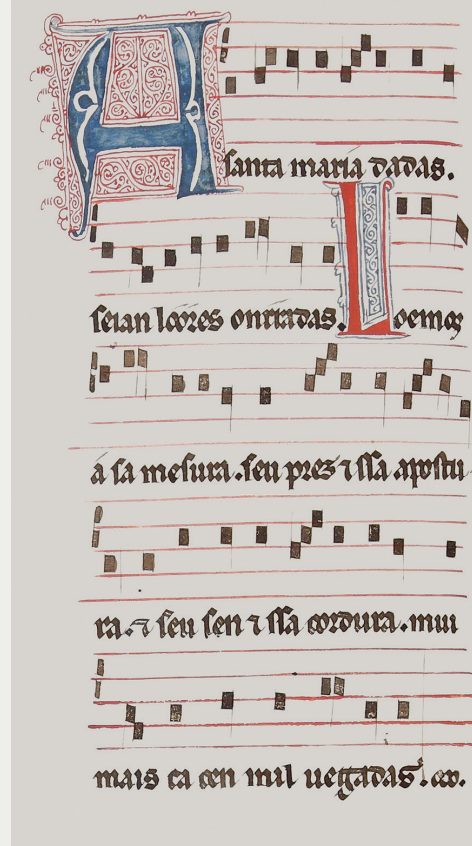 A santa maria dadas.
seian loores onrradas. Loemos
á sa mesura .seu pres ⁊ ssa .apostu
ra. ⁊ seu sen ⁊ ssa cordura. mui
mais ca cen mil uegadas.